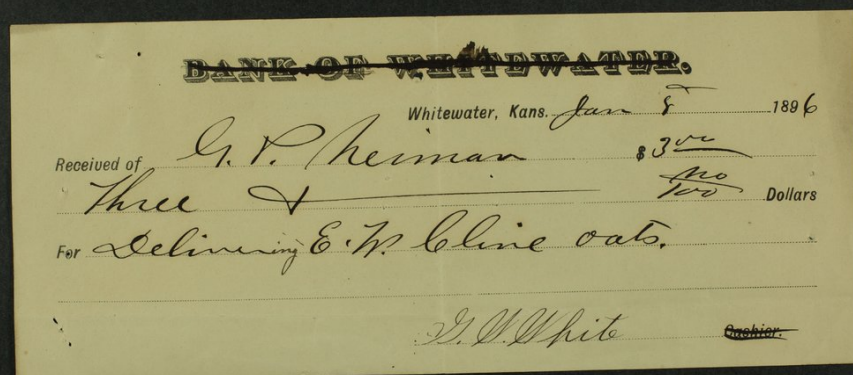 BANK OF WHITEWATER.
Whitewater, Kans. Jan 8 1896
Received of G. P. Neiman $3 00
Three & no/100 Dollars
For Delivering E. W. Cline oats.
G. W. White Cashier.